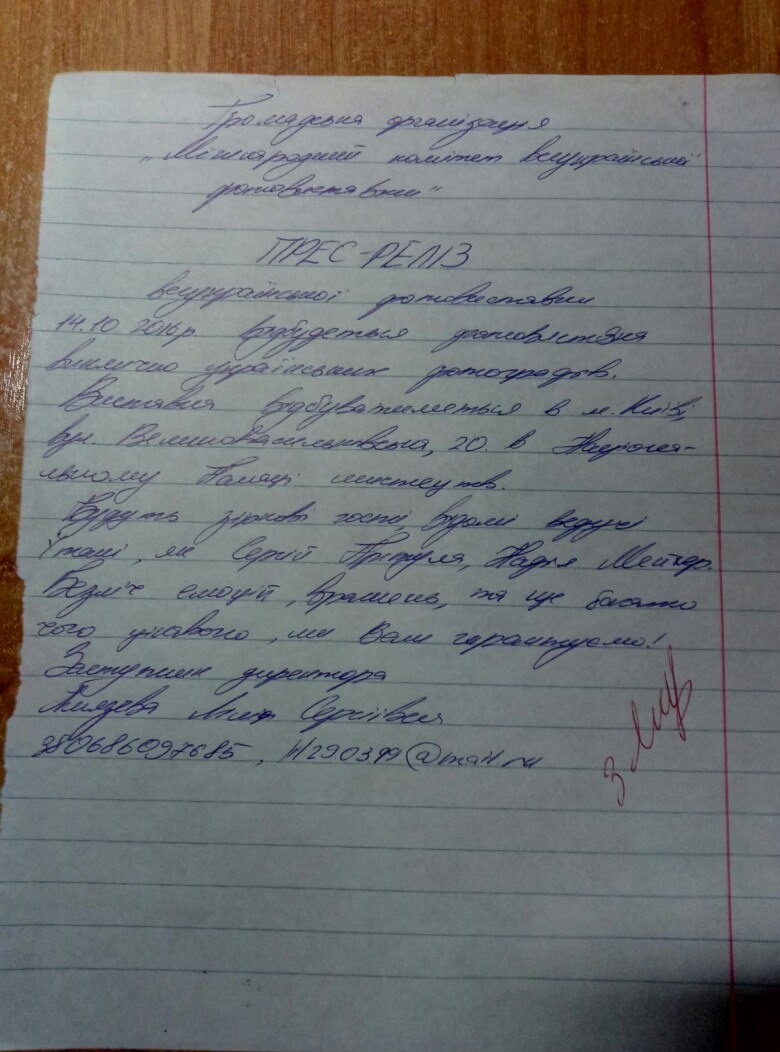 Громадська організація
„Міжнародний комітет всеукраїнської
фотовиставки"
ПРЕС-РЕЛІЗ
всеукраїнської фотовиставки
14.10.2016р відбудеться фотовиставка
виключно українських фотографів.
Виставка відбуватиметься в м. Києві,
вул. Великовасильківська, 20. в Націона-
льному Палаці мистецтв.
Будуть зіркові гості відомі ведучі
такі, як Сергій Притула, Надія Мейхер.
Безліч емоцій, вражень, та ще багато
чого цікавого, ми Вам гарантуємо!
Заступник директора
Сергіївна
380686097685, @mail.ru